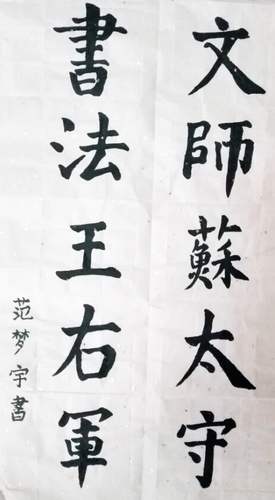 文師蘇太守
書法王右軍
范梦宇書